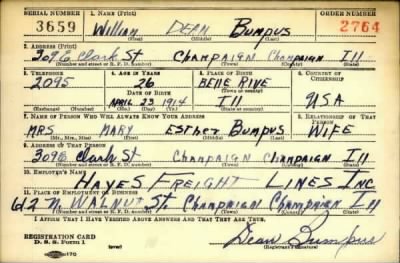 SERIAL NUMBER 1. NAME (Print) ORDER NUMBER
3659 William DEAN Bumpus 2764
(First) (Middle) (Last)
2. ADDRESS (Print)
309 E Clark St Champaign Champaign Ill
(Number and street or R. F. D. number) (Town) (County) (State)
3. TELEPHONE 4. AGE IN YEARS 5. PLACE OF BIRTH 6. COUNTRY OF CITIZENSHIP
2095 26 BELLE RIVE
DATE OF BIRTH (Town or county)
APRIL 23 1914 Ill USA
(Exchange) (Number) (Mo.) (Day) (Yr.) (State or country)
7. NAME OF PERSON WHO WILL ALWAYS KNOW YOUR ADDRESS 8. RELATIONSHIP OF THAT PERSON
MRS MARY Esther Bumpus WIFE
(Mr., Mrs., Miss) (First) (Middle) (Last)
9. ADDRESS OF THAT PERSON
309 E Clark St Champaign Champaign Ill
(Number and street or R. F. D. number) (Town) (County) (State)
10. EMPLOYER'S NAME
HAYES FREIGHT LINES INC
11. PLACE OF EMPLOYMENT OR BUSINESS
612 N. WALNUT St. Champaign Champaign Ill
(Number and street or R. F. D. number) (Town) (County) (State)
I AFFIRM THAT I HAVE VERIFIED ABOVE ANSWERS AND THAT THEY ARE TRUE.
REGISTRATION CARD
D. S. S. Form 1 Dean Bumpus
(Registrant's signature)